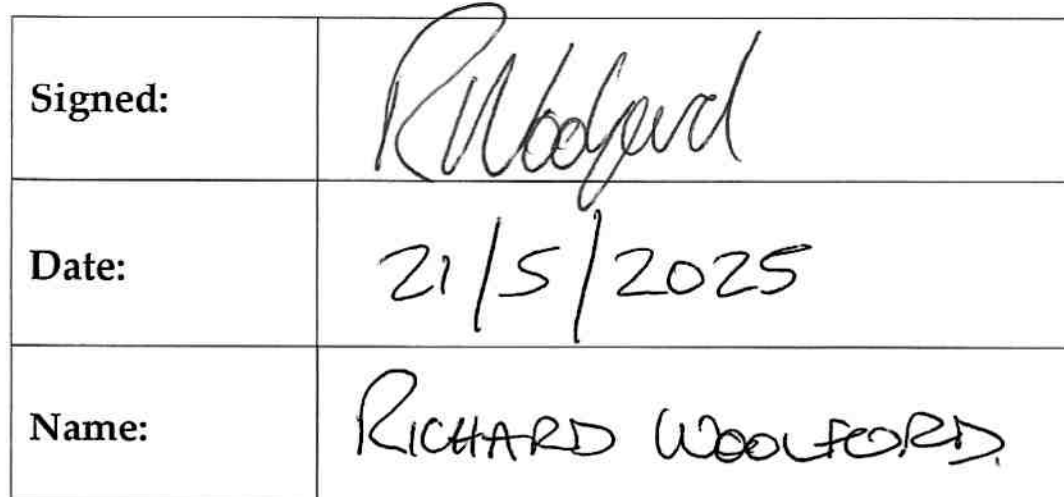 Signed: RWoolford
Date: 21/5/2025
Name: RICHARD WOOLFORD.